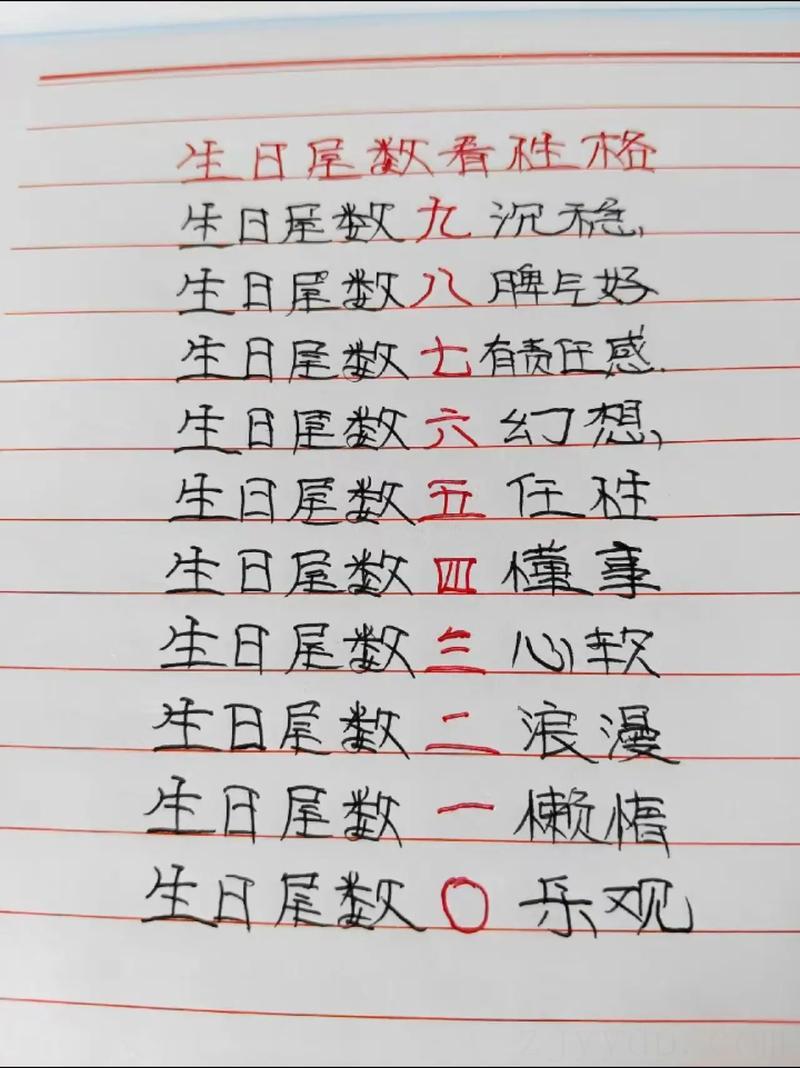 生日尾数看性格
生日尾数九沉稳,
生日尾数八脾气好
生日尾数七有责任感.
生日尾数六幻想,
生日尾数五任性
生日尾数四懂事
生日尾数三心软
生日尾数二浪漫
生日尾数一懒惰
生日尾数〇乐观